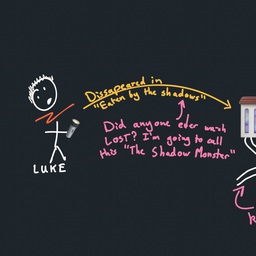 Dissapeared in
"Eaten by the shadows"
Did anyone ever watch
LOST? I'm going to call
this "The Shadow Monster"
LUKE